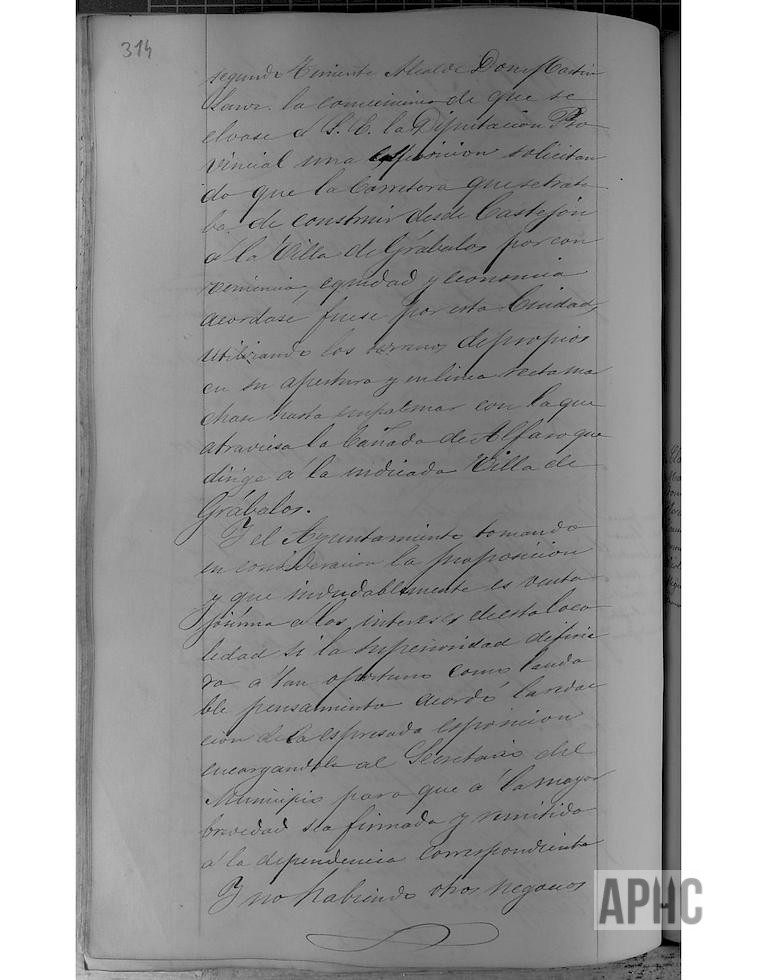 314
segundo Teniente Alcalde Don Martin
la conveniencia de que se
elvase á S. E. la Diputacion Pro-
vincial una esposicion solicitan
do que la Carretera que se trata
ba de construir desde Castejón
á la Villa de Grábalos por con
veniencia, equidad y economia
acordase fuese por esta Ciudad,
utilizando los terrenos de propios
en su apertura y en linea recta ma
chase hasta empalmar con la que
atraviesa la Cañada de Alfaro que
dirige á la indicada Villa de
Grábalos.
Y el Ayuntamiento tomando
en consideracion la proposicion
y que indudablemente es venta
josisima á los intereses de esta loca
lidad si la superioridad difirie
ra á tan oportuno como lauda
ble pensamiento acordó la redac
cion de la espresada esposicion
encargandola al Secretario del
Municipio para que á la mayor
brevedad sea firmada y remitida
á la dependencia correspondiente
Y no habiendo otros negocios
APHC